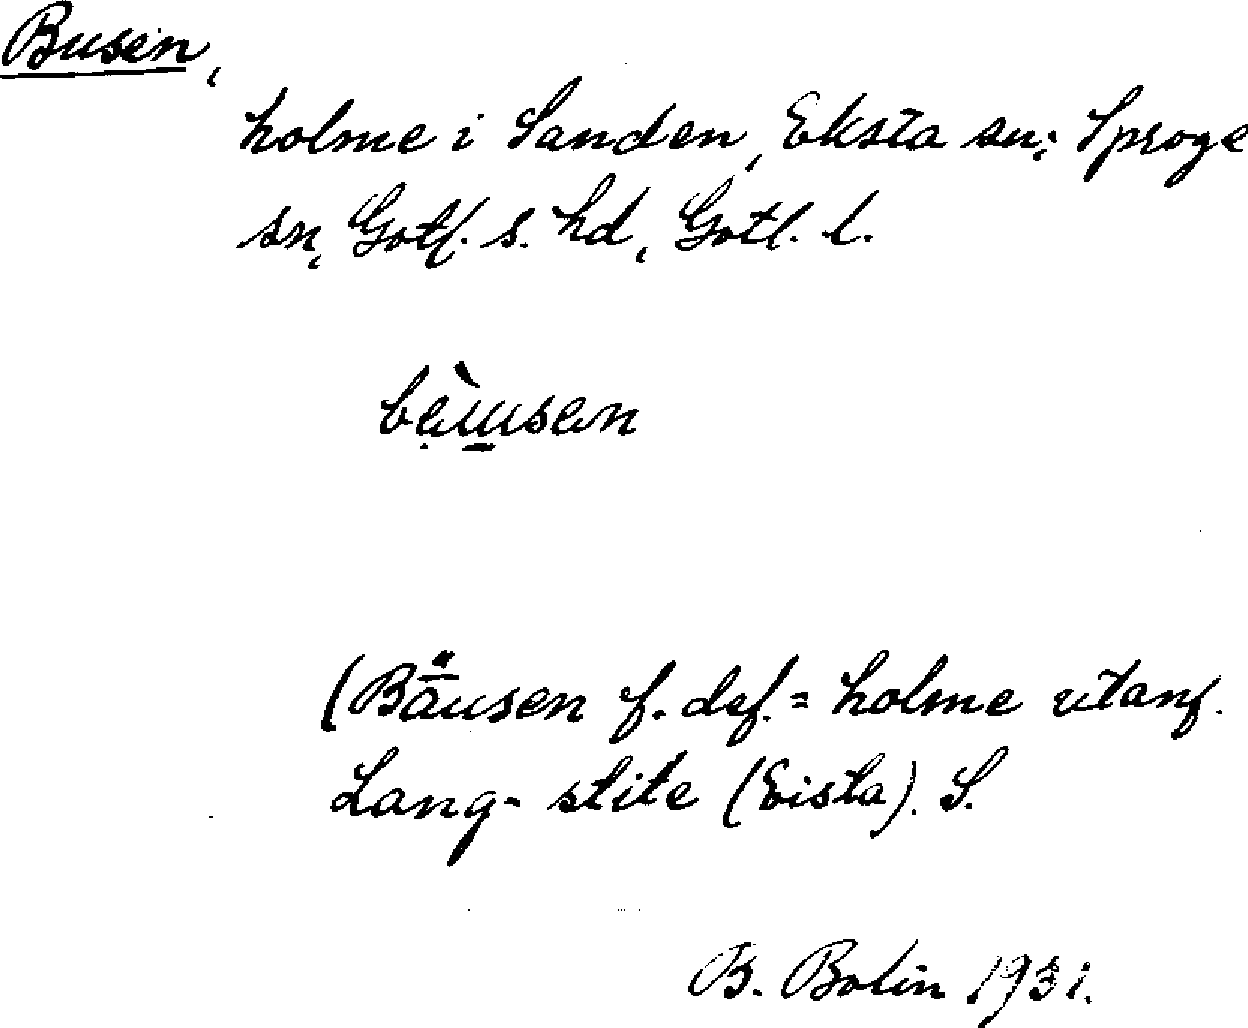 Busen,
holme i Sanden, Eksta sn; Sproge
sn, Gotl. s. hd, Gotl. l.
bèusen
(Bäusen f. def. = holme utanf.
Lang-stite (Eista). S.
B. Bolin 1931.